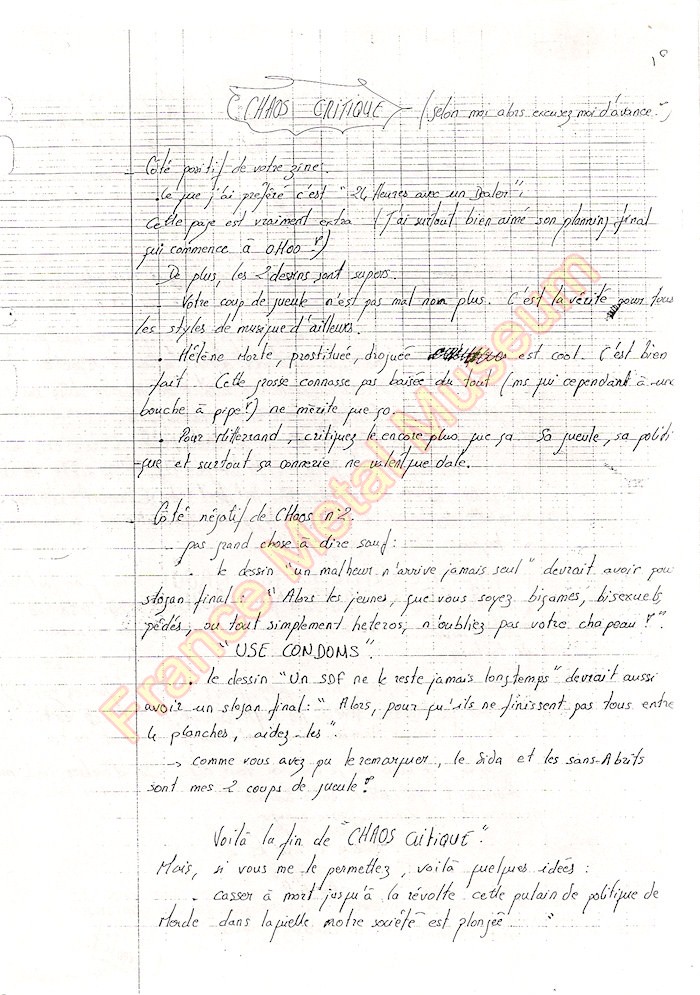 10
CHAOS CRITIQUE (selon moi alors excusez moi d'avance !)
Côté positif de votre zine.
. Ce que j'ai préféré c'est "24 Heures avec un Dealer",
Cette page est vraiment extra (J'ai surtout bien aimé son planning final
qui commence à 0H00 !)
. De plus, les 2 dessins sont supers.
. Votre coup de gueule n'est pas mal non plus. C'est la vérité pour tous
les styles de musique d'ailleurs.
. Hélène Morte, prostituée, droguée est cool. C'est bien
fait. Cette grosse connasse pas baisée du tout (ms qui cependant à une
bouche à pipe !) ne mérite que ça.
. Pour Mitterrand, critiquez le encore plus que ça. Sa gueule, sa politi
que et surtout sa connerie ne valent que dale.
Côté négatif de Chaos n°2.
. pas grand chose à dire sauf :
. le dessin "un malheur n'arrive jamais seul" devrait avoir pour
slogan final : "Alors les jeunes, que vous soyez bigames, bisexuels
pédés, ou tout simplement heteros, n'oubliez pas votre chapeau !".
"USE CONDOMS".
. le dessin "Un SDF ne le reste jamais longtemps" devrait aussi
avoir un slogan final : "Alors, pour qu'ils ne finissent pas tous entre
4 planches, aidez-les".
→ comme vous avez pu le remarquer, le Sida et les sans-Abrits
sont mes 2 coups de gueule !
Voilà la fin de "CHAOS CRITIQUE".
Mais, si vous me le permettez, voilà quelques idées :
. casser à mort jusqu'à la révolte cette putain de politique de
Merde dans laquelle notre société est plongée "
France Metal Museum